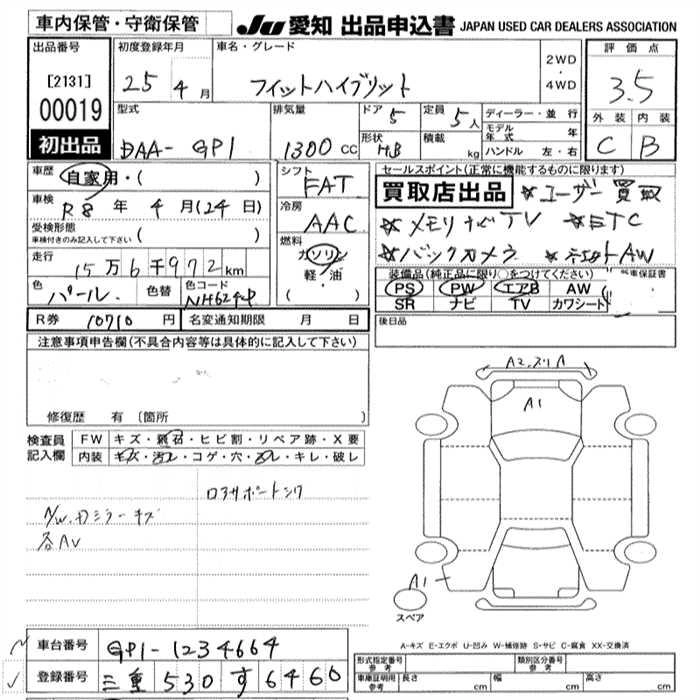 車内保管・守衛保管
JU 愛知 出品申込書 JAPAN USED CAR DEALERS ASSOCIATION
出品番号
[2131]
00019
初出品
初度登録年月
25年 4月
車名・グレード
フィットハイブリット
2WD
・
4WD
評価点
3.5
外装 内装
C B
型式
DAA- GP1
排気量
1300 cc
ドア 5
形状 HB
定員 5人
積載 kg
ディーラー・並行
モデル年式 年
ハンドル 左・右
車歴
自家用・( )
車検
R8 年 4月(24日)
受検形態
車検付きのみ記入して下さい ( )
走行
15万6千972km
色 パール 色替 色コード NH624P
シフト
FAT
冷房
AAC
燃料
ガソリン
軽・油
( )
セールスポイント(正常に機能するものに限ります)
買取店出品 ☆ユーザー買取
☆メモリナビTV ☆ETC
☆バックカメラ ☆社外AW
装備品(純正品に限り○をつけてください)
PS PW エアB AW( )
SR ナビ TV カワシート
車保証書
後日品
R券 10710円 名変通知期限 月 日
注意事項申告欄(不具合内容等は具体的に記入して下さい)
修復歴 有 [箇所
検査員記入欄
FW キズ・飛石・ヒビ割・リペア跡・X要
内装 キズ・汚レ・コゲ・穴・スレ・キレ・破レ
ロアサポートシワ
A/W.ドミラーキズ
各AV
A2.スリA
A1
A1
スペア
A-キズ E-エクボ U-凹み W-補修跡 S-サビ C-腐食 XX-交換済
車台番号 GP1-1234664
登録番号 三重 530 す 6466
形式指定番号 参考
類別区分番号 参考
車庫証明用 参考 長さ cm 幅 cm 高さ cm